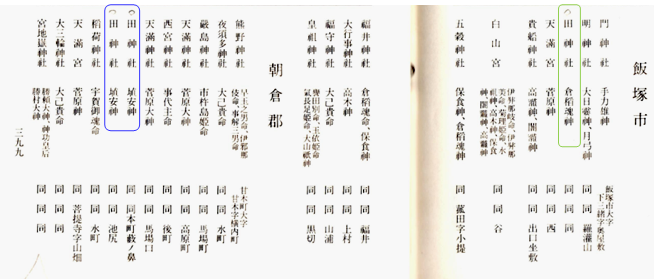 飯塚市
門神社 手力雄神 飯塚市大字下三緒字奥屋敷
明神社 大日孁神、月弓神 同 羅漢山
田神社 倉稲魂神 同 同
天満宮 菅原神 同 西
貴船神社 高龗神、闇龗神 同 出口坐敷
白山宮 伊弉那岐命、伊弉那美命、菊理姫命、水祖神、高木神、保食神、闇龗神、高龗神 同 谷
五穀神社 保食神、倉稲魂神 同 菰田字小提
福井神社 倉稲魂命、保食神 同 同 福井
大行事神社 高木神 同 同 上村
福守神社 大己貴命 同 同 山浦
皇祖神社 譽田別命、玉依姫命、氣長足姫命、大山祇神 同 同 黒切
朝倉郡
熊野神社 早玉之男命、伊邪那岐命、事解三男命 甘木町大字甘木字横内町
夜須多神社 大己貴命 同 同 水町
厳島神社 市杵島姫命 同 同 馬場町
天満神社 菅原大神 同 同 高原町
西宮神社 事代主命 同 同 後町
天満神社 菅原大神 同 同 馬場口
田神社 埴安神 同 同 池尻
田神社 埴安命 同 同本町裁ノ鼻
稲荷神社 宇賀御魂命 同 同 水町
天満宮 菅原神 同 菩提寺字山畑
大三輪神社 大己貴命 同 同 同
宮地嶽神社 勝頼大神、神功皇后 勝村大神 同 同 同
三九九